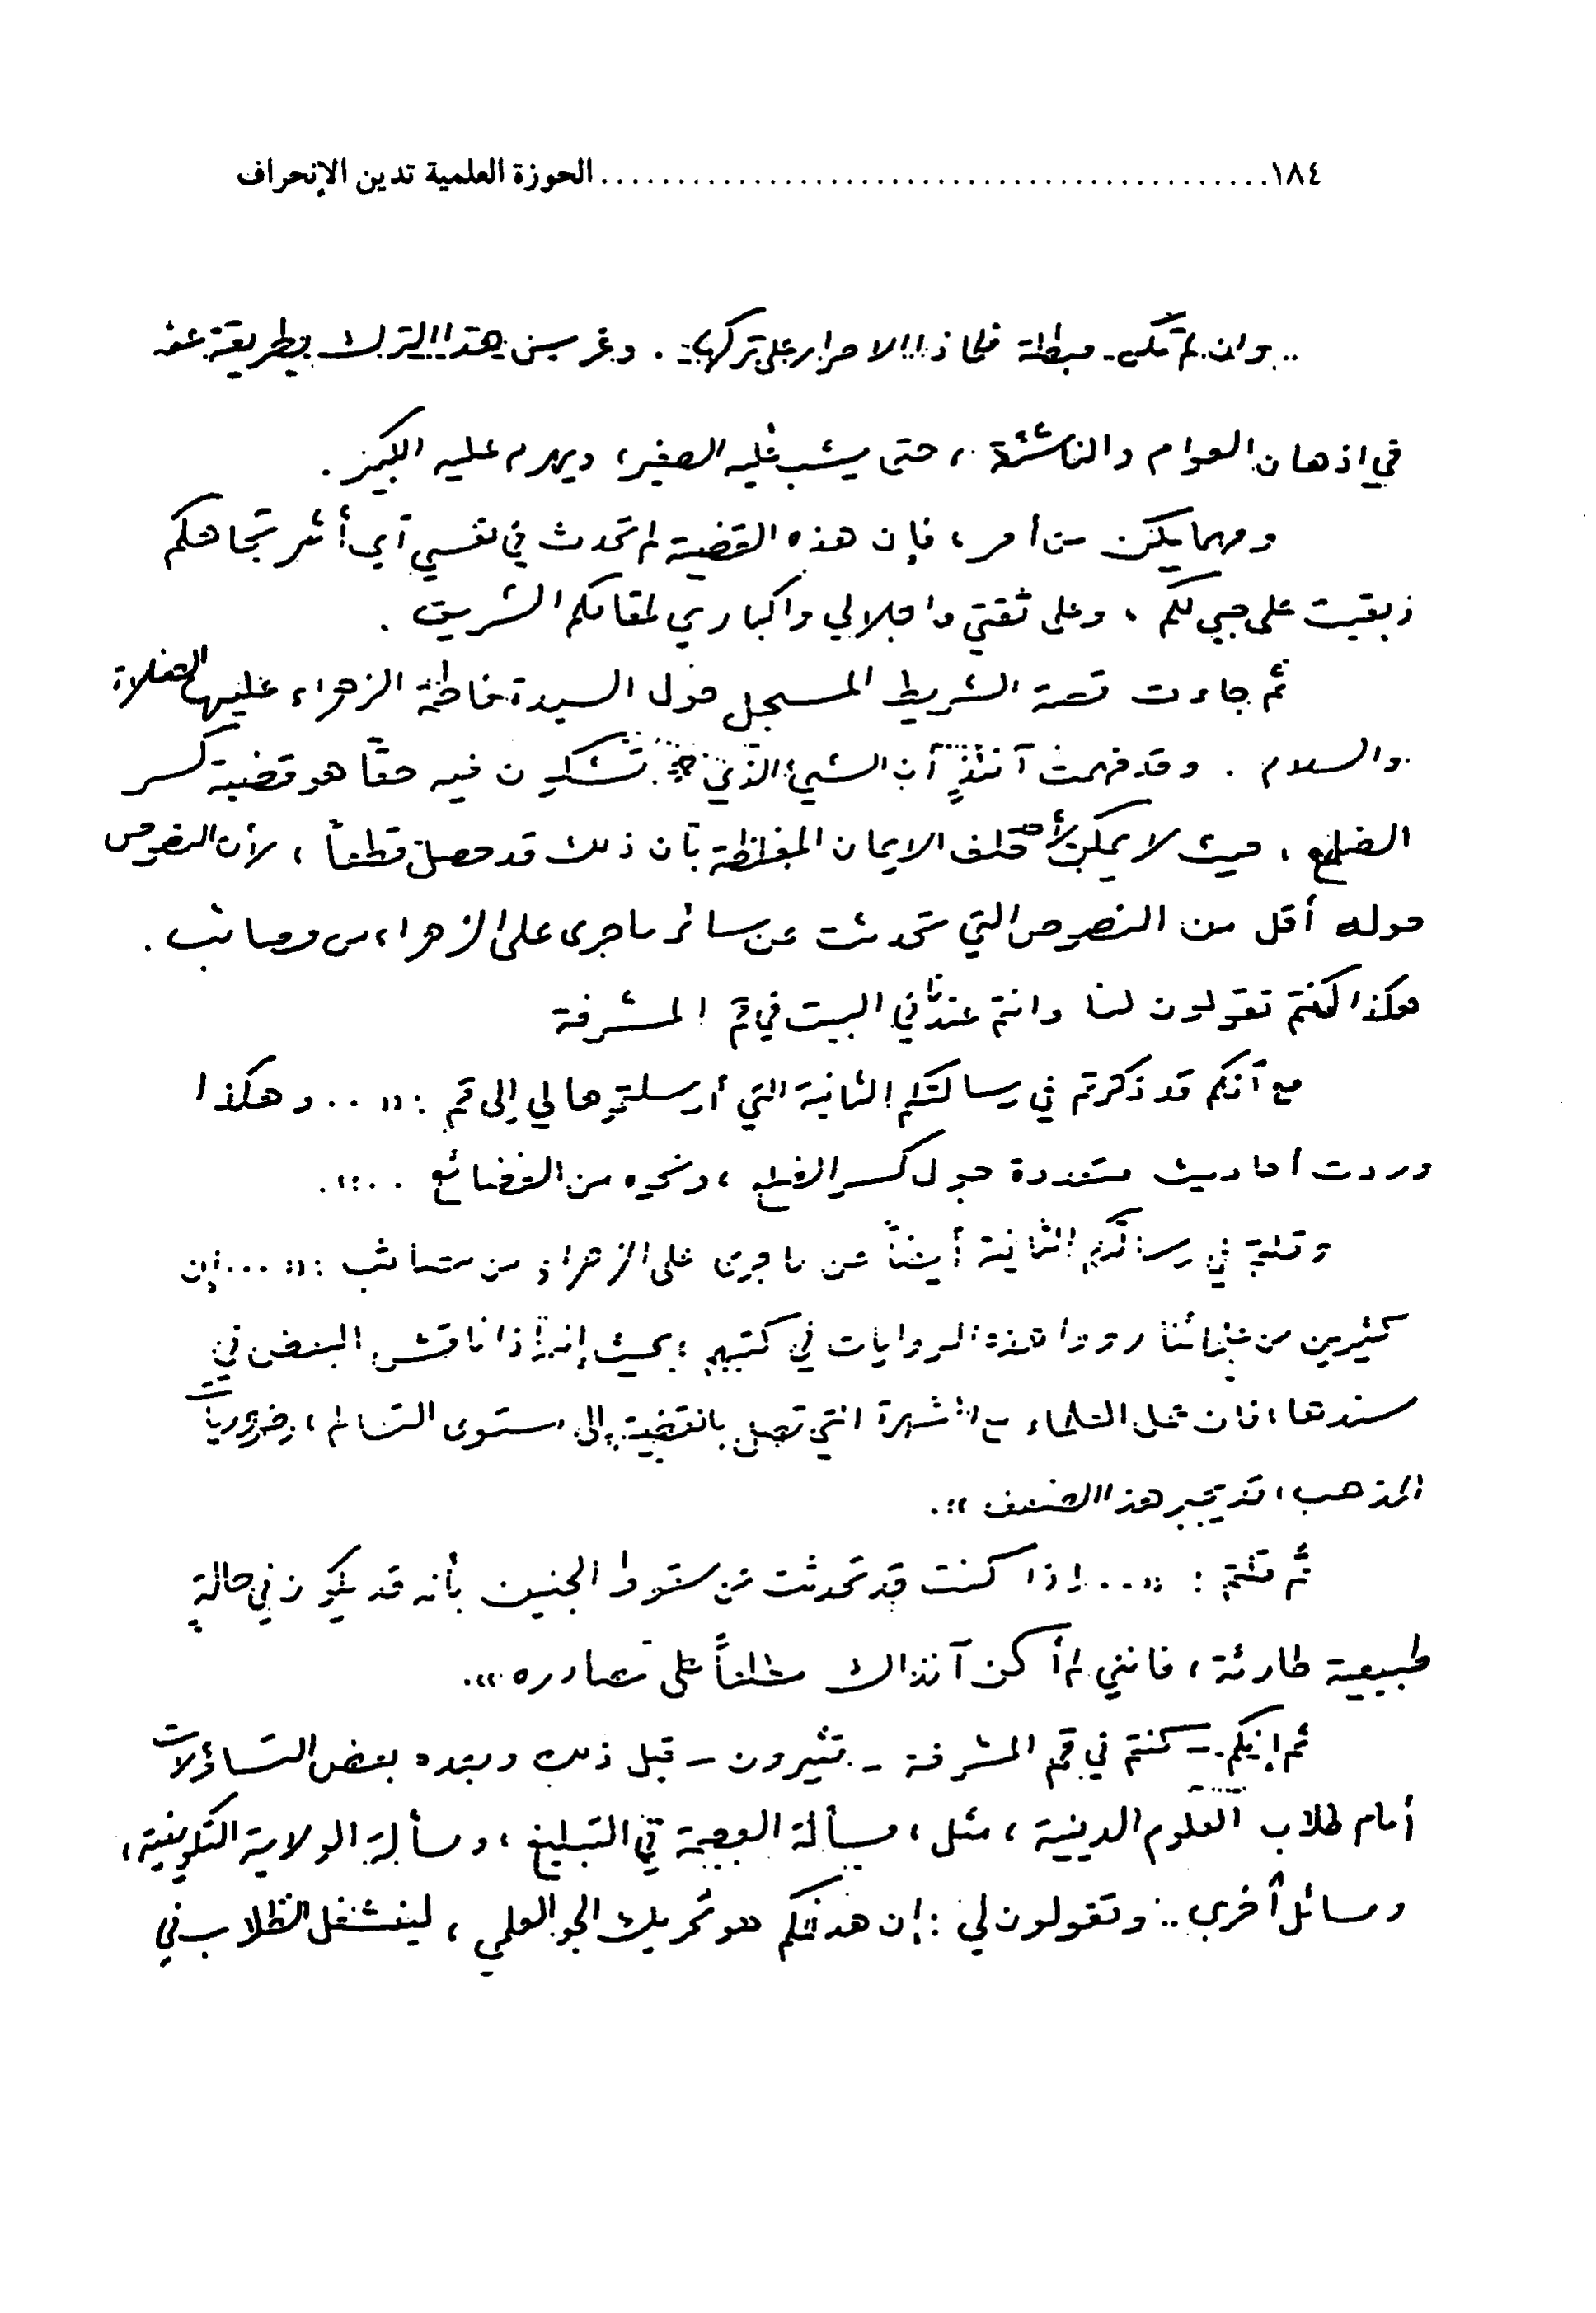 ١٨٤............................................الحوزة العلمية تدين الإنحراف
.. وان لم تكن مبطلة فلماذا الاصرار على تركها. وغرس هذا الترك بطريقة
في اذهان العوام والناشئة، حتى يشب عليه الصغير، ويهرم عليه الكبير.
ومهما يكن من أمر، فإن هذه القضية لم تحدث في نفسي أي أثر تجاهكم
وبقيت على حبي لكم، وعلى ثقتي واجلالي واكباري لمقامكم الشريف.
ثم جاءت قصة الشريط المسجل حول السيدة فاطمة الزهراء عليها الصلاة
والسلام. وقد فهمت آنئذٍ أن الشيء الذي تشككون فيه حقاً هو قضية كسر
الضلع، حيث لا يمكن لأحد حلف الايمان المغلظة بأن ذلك قد حصل قطعاً، لأن النصوص
حوله أقل من النصوص التي تحدثت عن سائر ما جرى على الزهراء من مصائب.
هكذا كنتم تقولون لنا وانتم عندنا في البيت في قم المشرفة
مع أنكم قد ذكرتم في رسالتكم الثانية التي أرسلتموها لي إلى قم: «.. وهكذا
وردت أحاديث متعددة حول كسر الضلع، ونحوه من الفضائع ..».
وقلتم في رسالتكم الثانية أيضاً عن ما جرى على الزهراء من مصائب: «... إن
كثيرين من علمائنا رووا هذه الروايات في كتبهم؛ بحيث إنه إذا ناقش البعض في
سندها، فان عمل العلماء مع الشهرة التي تصل بالقضية إلى مستوى التسالم، وضروريات
المذهب، قد يجبر هذا الضعف».
ثم قلتم: «.. إذا كنت قد تحدثت عن سقوط الجنين بأنه قد يكون في حالةٍ
طبيعية طارئة، فانني لم أكن آنذاك مطلعاً على مصادره».
ثم إنكم - كنتم في قم المشرفة - تثيرون - قبل ذلك وبعده بعض التساؤلات
أمام طلاب العلوم الدينية، مثل، مسألة العصمة في التبليغ، ومسألة الولاية التكوينية،
ومسائل أخرى.. وتقولون لي: إن هدفكم هو تحريك الجو العلمي، لينشغل الطلاب في